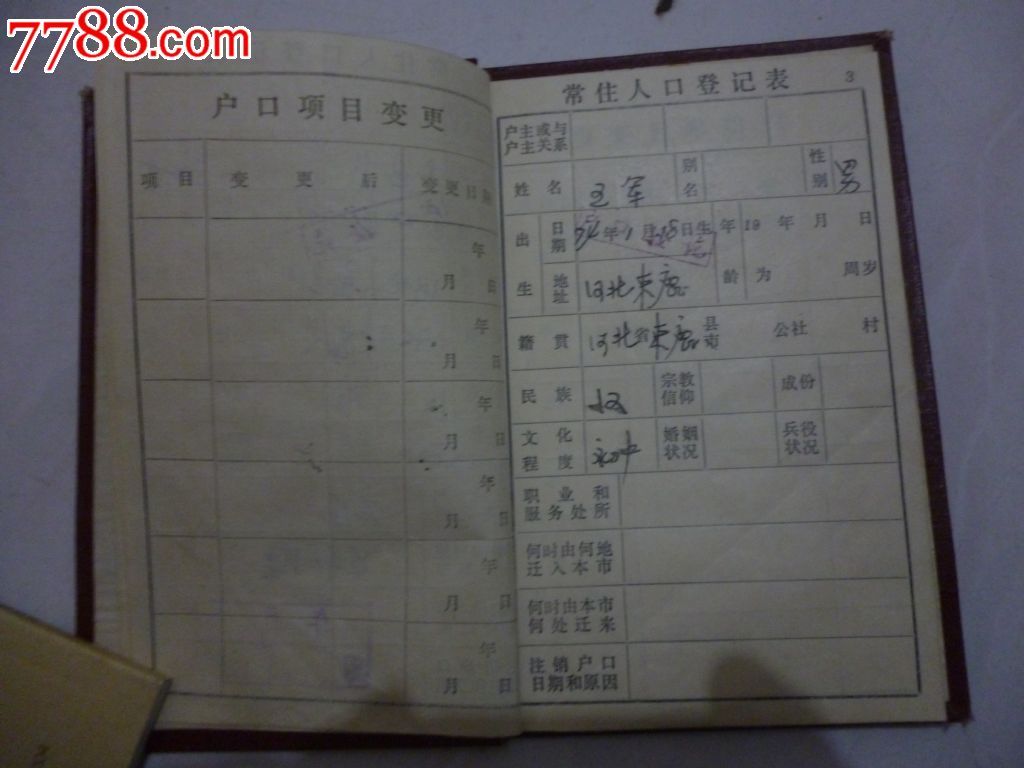 7788.com
中国收藏热线
户口项目变更
项目 变更后 变更日期
年
月 日
年
月 日
年
月 日
年
月 日
年
月 日
年
月 日
3
常住人口登记表
户主或与
户主关系
姓名 王军 别名 性别 男
出生 日期 年 1月 日生 年龄 19 年 月 日
地址 河北束鹿 为 周岁
籍贯 河北省束鹿县市 公社 村
民族 汉 宗教信仰 成份
文化程度 初中 婚姻状况 兵役状况
职业和
服务处所
何时由何地
迁入本市
何时由本市
何处迁来
注销户口
日期和原因